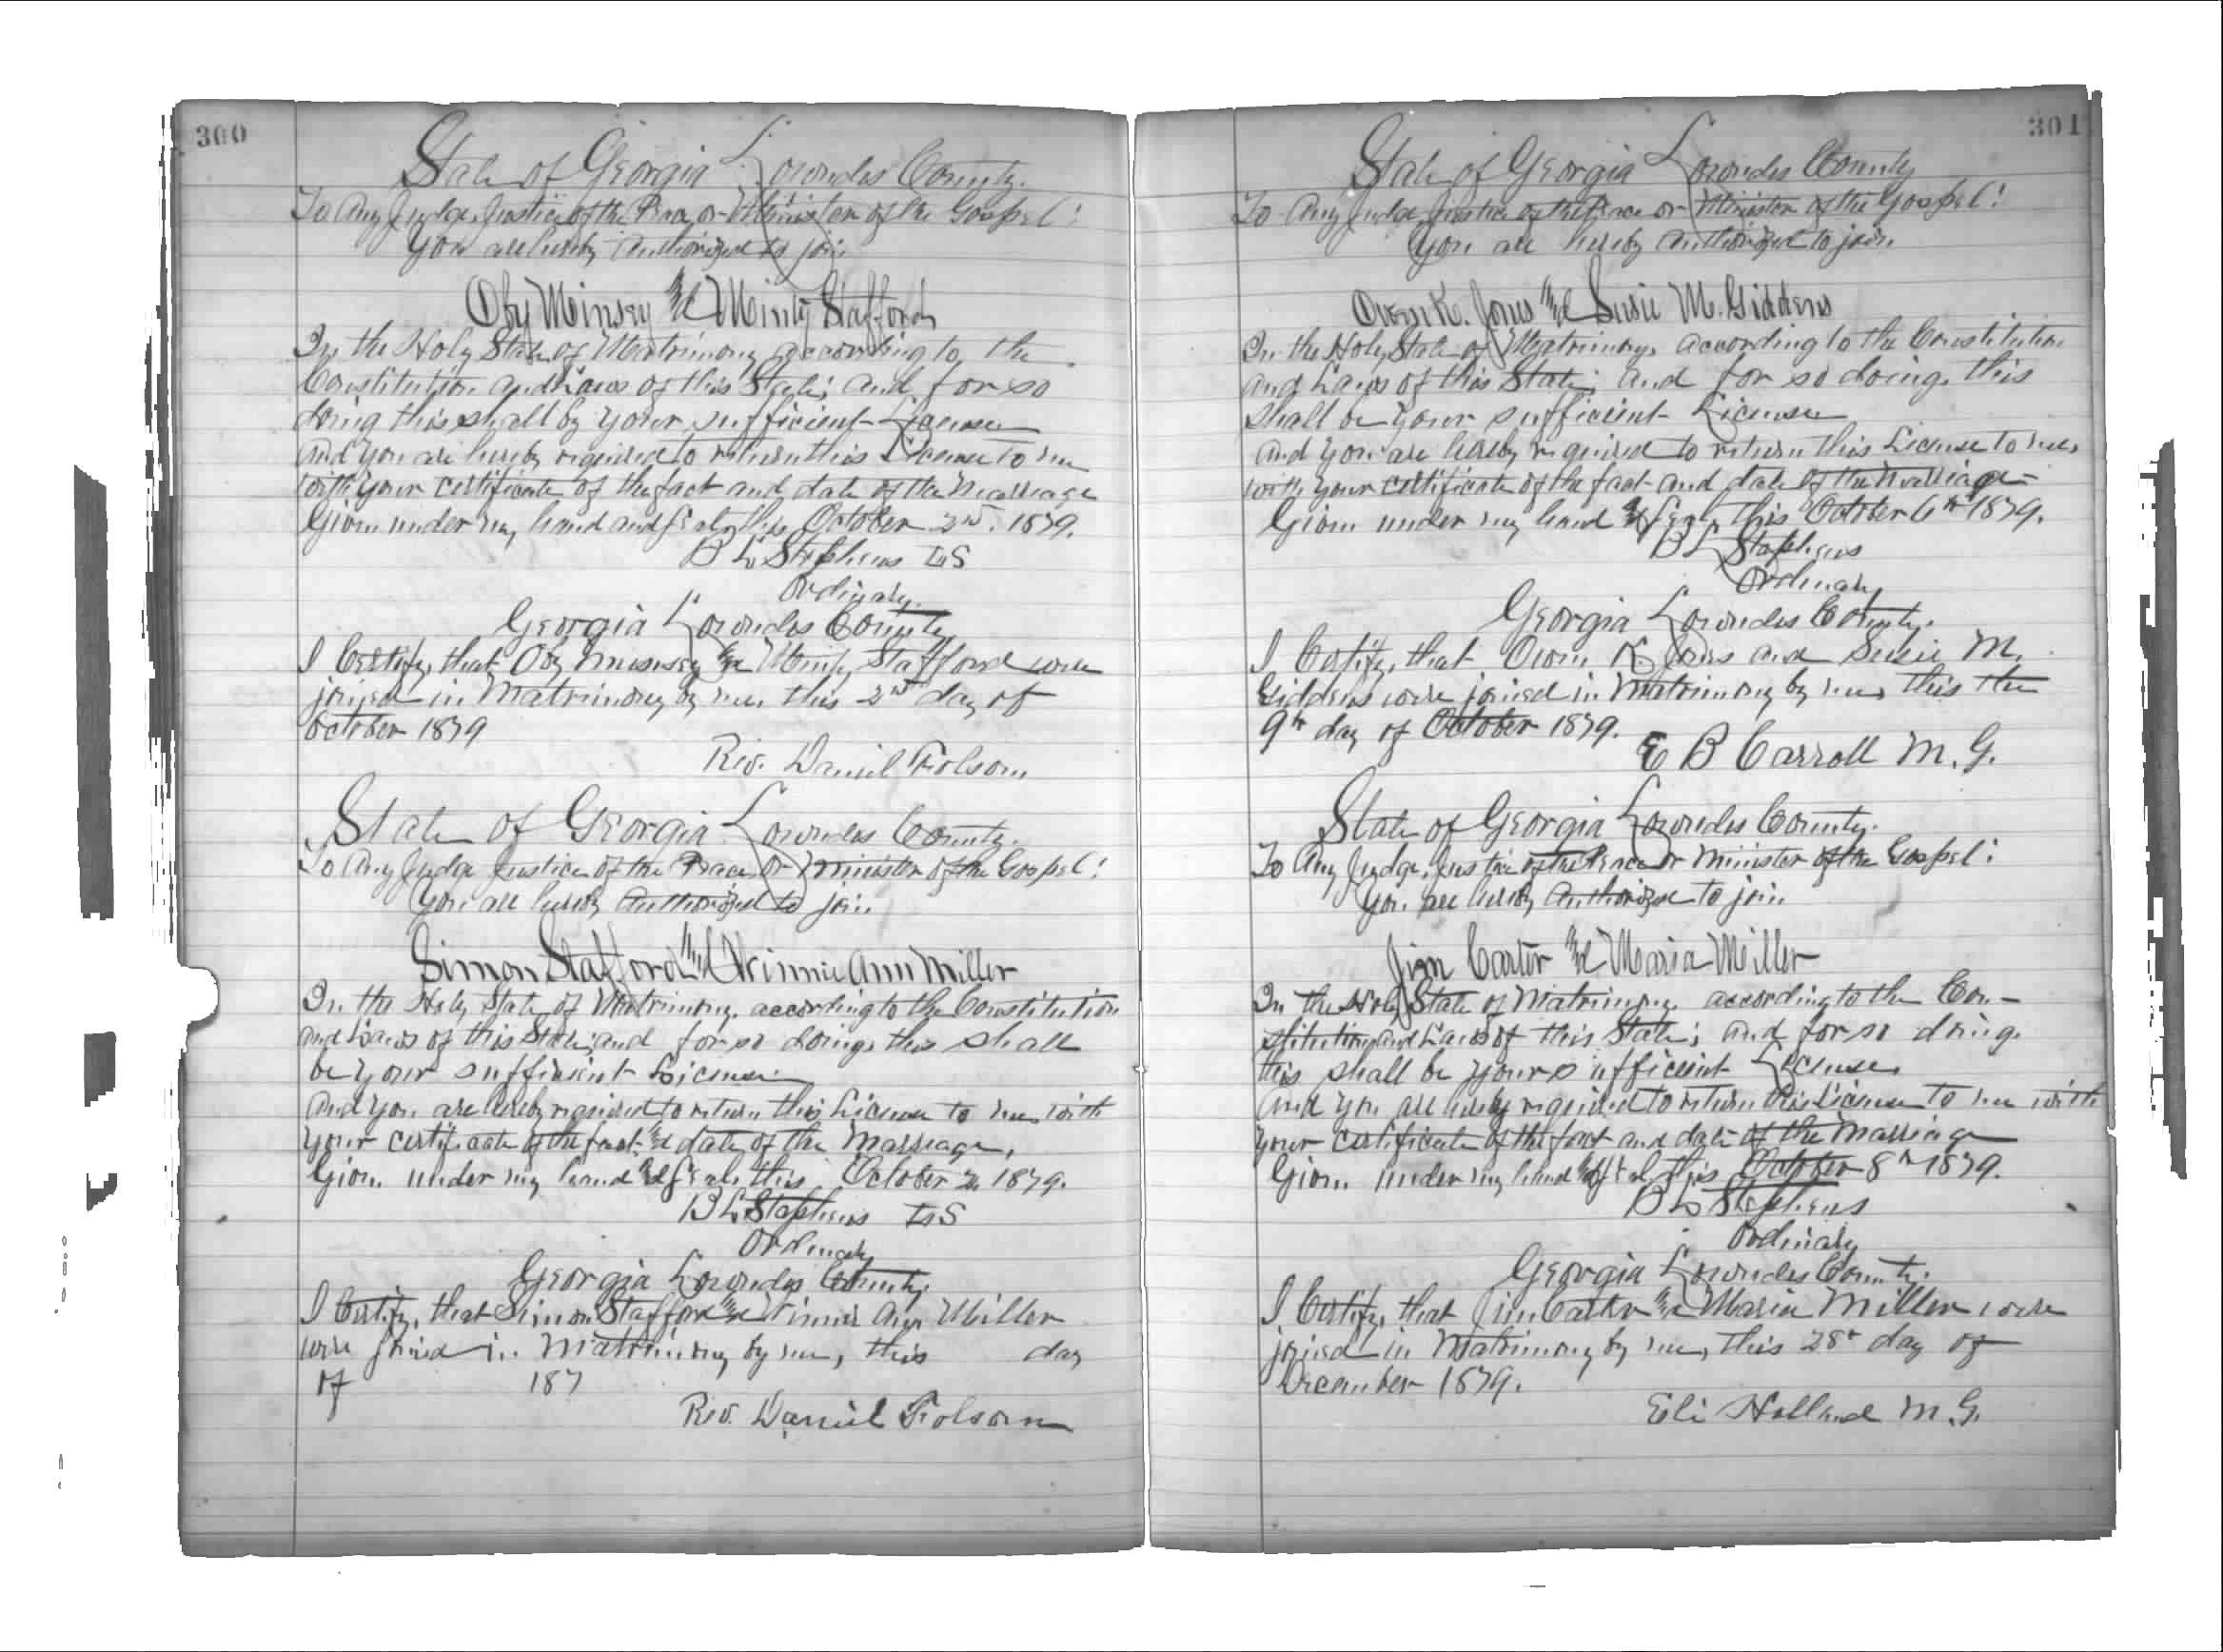 300
State of Georgia Lowndes County.
To Any Judge, Justice of the Peace, or Minister of the Gospel!
You are hereby Authorized to join
Oby Minsey & Minty Stafford
In the Holy State of Matrimony according to the
Constitution and Laws of this State; and for so
doing this shall by your sufficient License
And you are hereby required to return this License to me
with your certificate of the fact and date of the Marriage
Given under my hand and seal, this October 2nd. 1879.
B L Stephens LS
Ordinary.
Georgia Lowndes County
I Certify, that Oby Minsey & Minty Stafford were
joined in Matrimony by me, this 2nd day of
October 1879
Rev. Daniel Folsom
State of Georgia Lowndes County.
To Any Judge Justice of the Peace, Or Minister of the Gospel!
You are hereby Authorized to join
Simon Stafford & Winnie Ann Miller
In the Holy State of Matrimony, according to the Constitution
and Laws of this State; and for so doing, this shall
be your sufficient License
And you are hereby required to return this License to me, with
your certificate of the fact & date of the Marriage,
Given under my hand & seal, this October 2nd 1879.
B L Stephens LS
Ordinary
Georgia Lowndes County
I Certify, that Simon Stafford & Winnie Ann Miller
were joined in Matrimony by me, this day
of 187
Rev. Daniel Folsom
301
State of Georgia Lowndes County
To Any Judge, Justice of the Peace or Minister of the Gospel!
You are hereby Authorized to join
Owen K. Jones & Susie M. Giddens
In the Holy State of Matrimony, according to the Constitution
and Laws of this State; and for so doing, this
shall be your sufficient License
And you are hereby required to return this License to me,
with your certificate of the fact and date of the Marriage
Given under my hand & seal, this October 6th 1879.
B L Stephens
Ordinary
Georgia Lowndes County.
I Certify, that Owen K. Jones and Susie M.
Giddens were joined in Matrimony by me, this the
9th day of October 1879.
E B Carroll M. G.
State of Georgia Lowndes County.
To Any Judge, Justice of the Peace or Minister of the Gospel!
You are hereby Authorized to join
Jim Carter & Maria Miller
In the Holy State of Matrimony, according to the Con-
stitution and Laws of this State; and for so doing,
this shall be your sufficient License,
And you are hereby required to return this License to me with
your certificate of the fact and date of the Marriage
Given under my hand & seal, this October 8th 1879.
B L Stephens
Ordinary
Georgia Lowndes County.
I Certify, that Jim Carter & Maria Miller were
joined in Matrimony by me, this 28th day of
December 1879.
Eli Holland M. G.